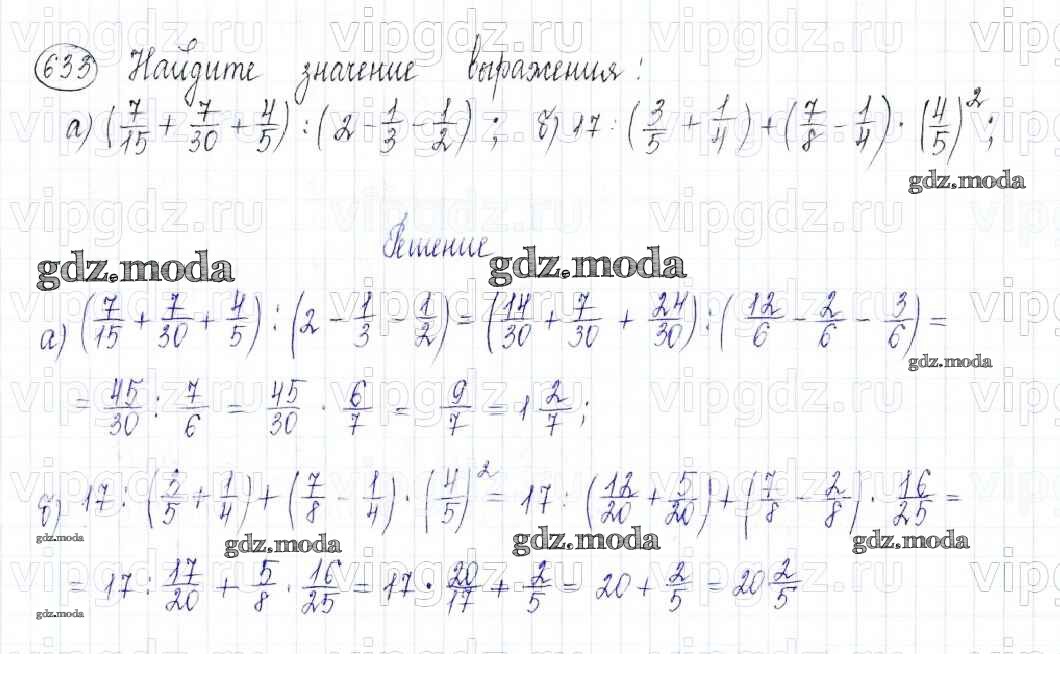 633 Найдите значение выражения:
а) (7/15 + 7/30 + 4/5) : (2 - 1/3 - 1/2); б) 17 : (3/5 + 1/4) + (7/8 - 1/4) · (4/5)²;
gdz.moda
Решение
gdz.moda gdz.moda
а) (7/15 + 7/30 + 4/5) : (2 - 1/3 - 1/2) = (14/30 + 7/30 + 24/30) : (12/6 - 2/6 - 3/6) =
gdz.moda
= 45/30 : 7/6 = 45/30 · 6/7 = 9/7 = 1 2/7;
б) 17 : (3/5 + 1/4) + (7/8 - 1/4) · (4/5)² = 17 : (12/20 + 5/20) + (7/8 - 2/8) · 16/25 =
gdz.moda gdz.moda gdz.moda gdz.moda
= 17 : 17/20 + 5/8 · 16/25 = 17 · 20/17 + 2/5 = 20 + 2/5 = 20 2/5
gdz.moda
vipgdz.ru vipgdz.ru vipgdz.ru vipgdz.ru